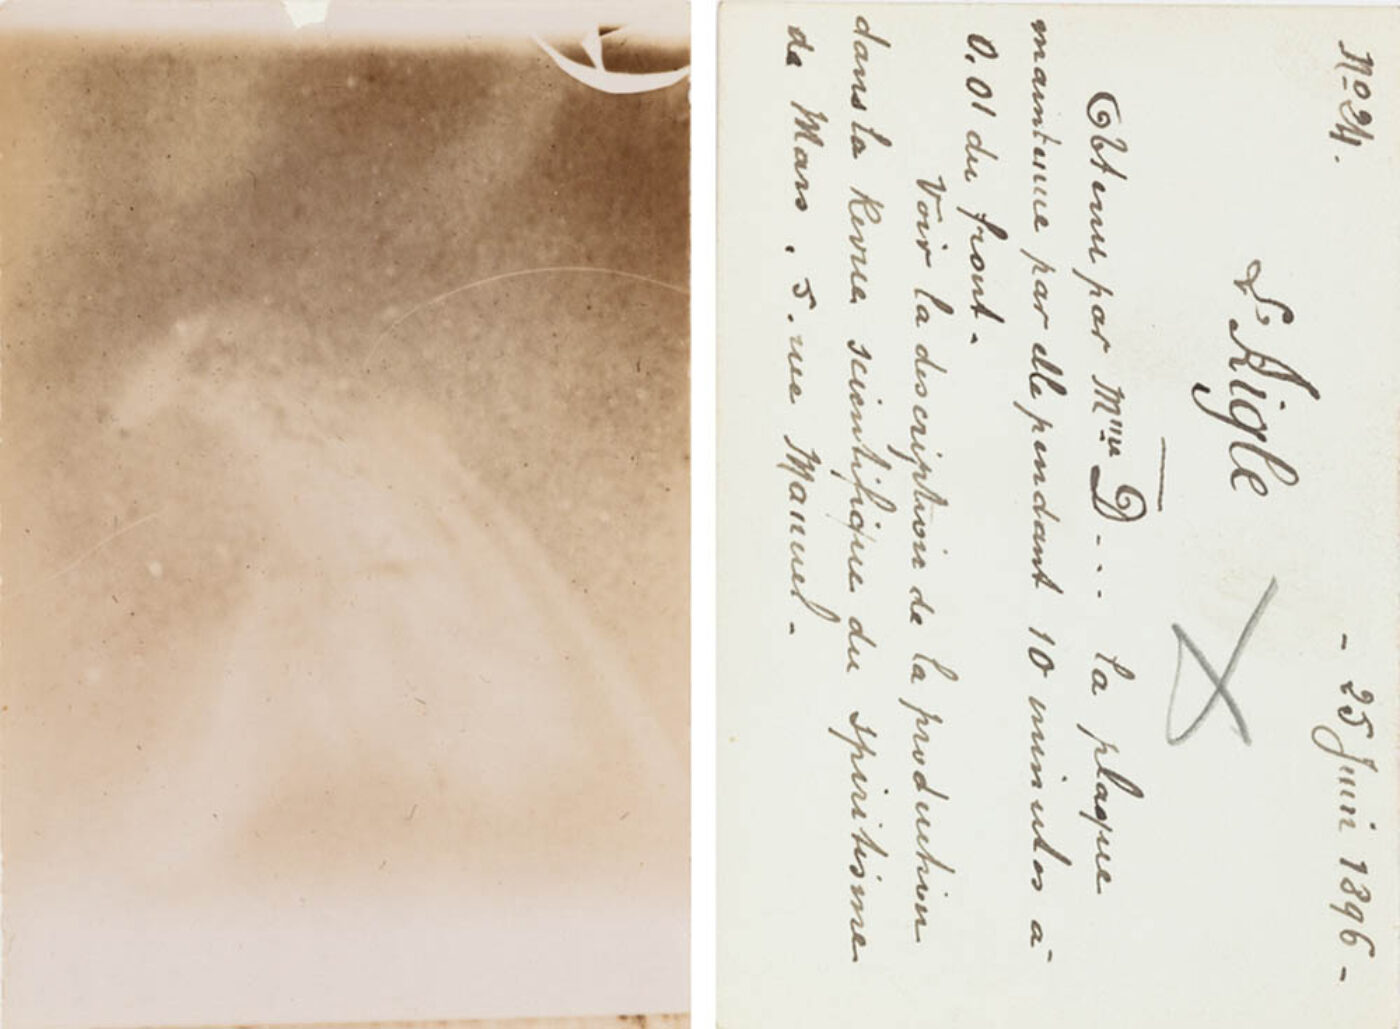 Nº 24.
- 25 Juin 1896 -
L'Aigle
Obtenu par Mme D... la plaque
maintenue par elle pendant 10 minutes à
0,01 du front.
Voir la description de la production
dans la Revue scientifique du spiritisme
de Mars. 5. rue Manuel.